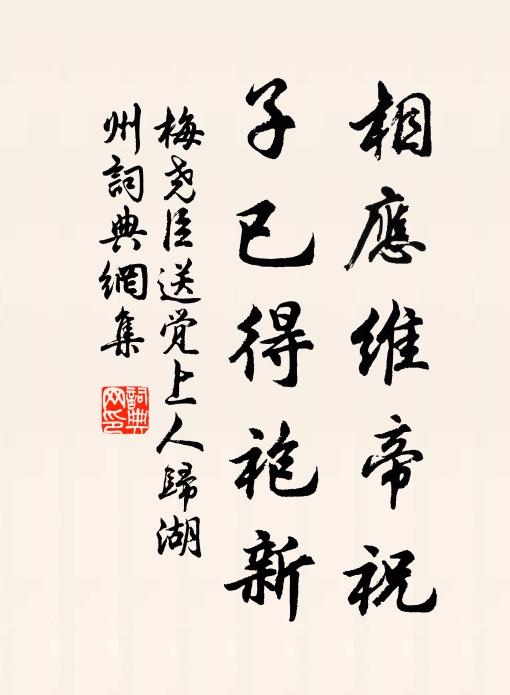 相應維帝祝
子已得袍新
梅堯臣送覚上人歸湖
州詞典網集
詞典
网印